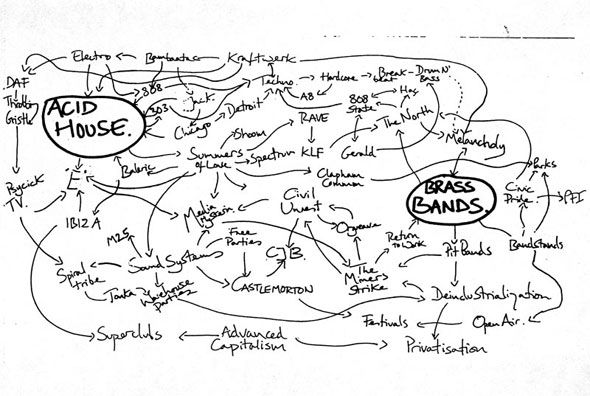 Electro
Bambaataa
Kraftwerk
DAF
Throbbin
Gristle
ACID
HOUSE.
808
303
Jack.
Chicago
Detroit
Techno
Hardcore
Break-
beat
Drum N'
Bass
A8
808
State
Hos
The North
Melancholy
Shoom
RAVE
Summers
of Love
Spectrum
KLF
Gerald
Clapham
Common
Parks
Civic
Pride
PFI
Psychick
TV.
"E."
Baleric
IBIZA
Media
Hysteria.
Civil
Unrest
Orgreave
BRASS
BANDS.
Return
to Work
Pit Bands
Bandstands
M25
Free
Parties
CJB.
Sound Systems
Spiral
tribe
Tonka
Warehouse
parties
CASTLEMORTON
The
Miners
Strike
Deindustrialization
Festivals
Open Air.
Superclubs
Advanced
Capitalism
Privatisation